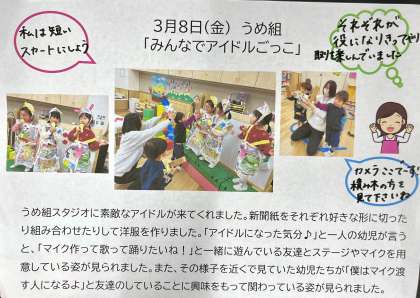 3月8日(金) うめ組
「みんなでアイドルごっこ」
私は短い
スカートにしよう
それぞれが
役になりきってやり
取りを楽しんでいました
カメラここでーす!
積み木の方を
見て下さいね
うめ組スタジオに素敵なアイドルが来てくれました。新聞紙をそれぞれ好きな形に切った
り組み合わせたりして洋服を作りました。「アイドルになった気分♪」と一人の幼児が言う
と、「マイク作って歌って踊りたいね!」と一緒に遊んでいる友達とステージやマイクを用
意している姿が見られました。また、その様子を近くで見ていた幼児たちが「僕はマイク渡
す人になるよ」と友達のしていることに興味をもって関わっている姿が見られました。